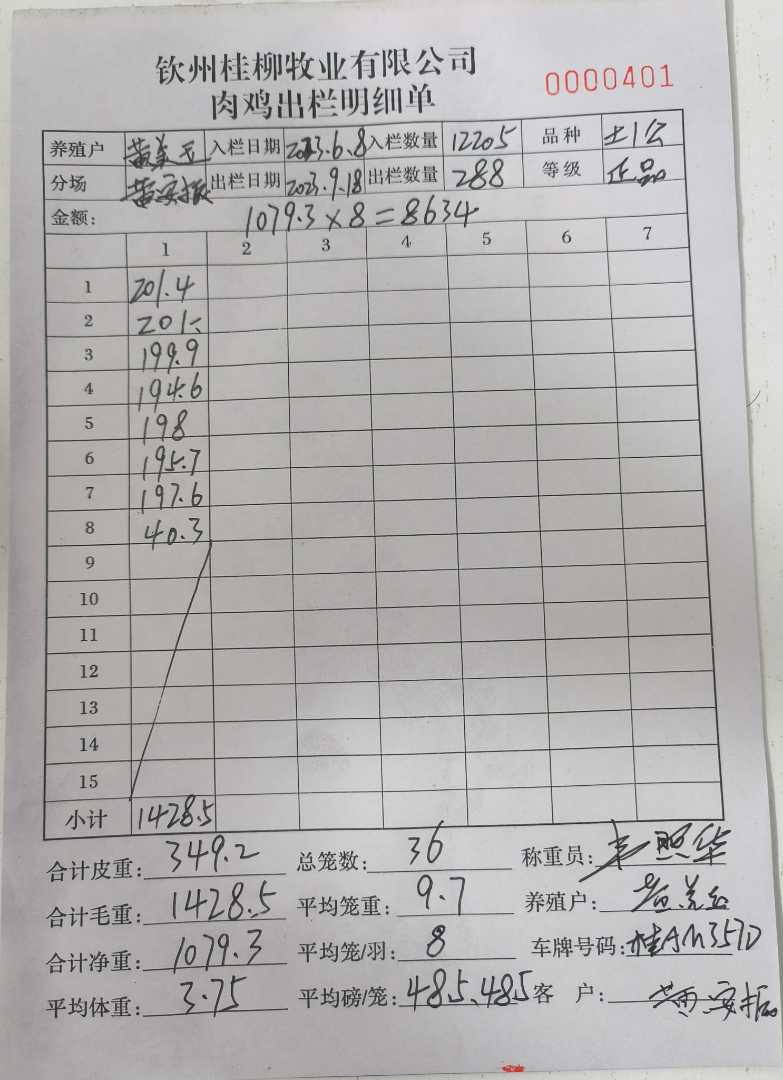 钦州桂柳牧业有限公司
肉鸡出栏明细单
0000401
养殖户 入栏日期 2023.6.8 入栏数量 12205 品种 土1公
分场 黄安振 出栏日期 2023.9.18 出栏数量 288 等级 正品
金额: 1079.3×8=8634
1 2 3 4 5 6 7
1 201.4
2 201
3 199.9
4 194.6
5 198
6 195.7
7 197.6
8 40.3
9
10
11
12
13
14
15
小计 1428.5
合计皮重: 349.2 总笼数: 36 称重员: 照华
合计毛重: 1428.5 平均笼重: 9.7 养殖户:
合计净重: 1079.3 平均笼/羽: 8 车牌号码: 桂AM357D
平均体重: 3.75 平均磅/笼: 485.485 客 户: 黄安振